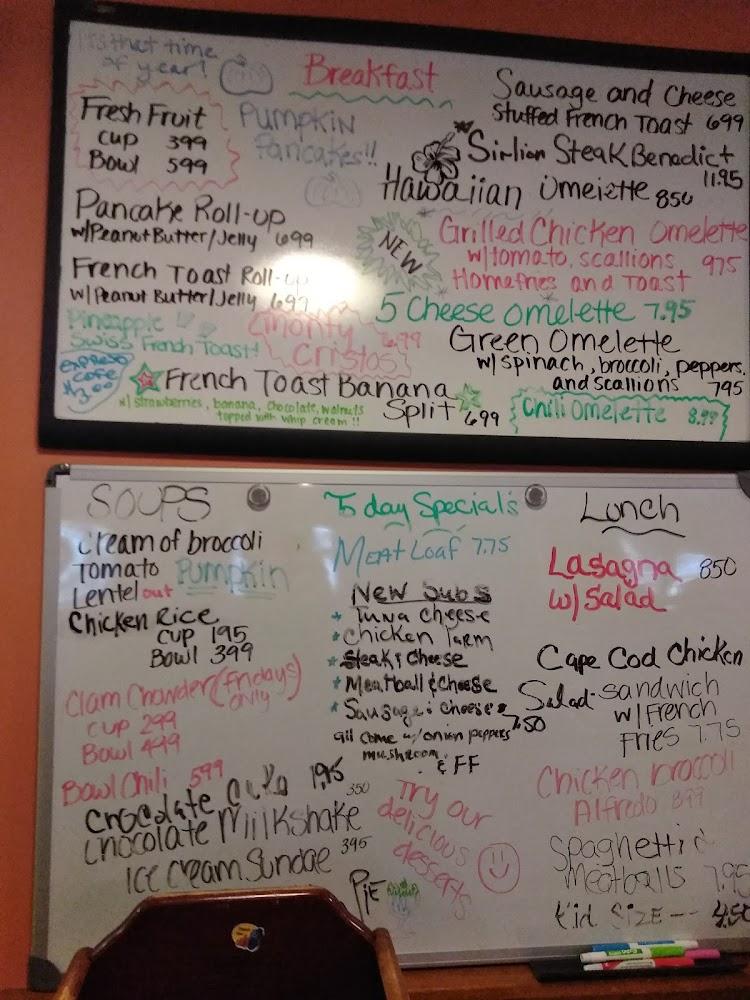 It's that time
of year!
Breakfast
Fresh Fruit
Cup 399
Bowl 599
Pumpkin
Pancakes!!
Pancake Roll-up
w/Peanut Butter/Jelly 699
French Toast Roll-up
w/Peanut Butter/Jelly 699
Pineapple
Swiss French Toast!
Monty 6.99
Cristos
expreso
cafe
$3.00
French Toast Banana
Split 699
w/ strawberries, banana, chocolate, walnuts
topped with whip cream!!
Sausage and Cheese
Stuffed French Toast 699
Sirlion Steak Benedict
11.95
Hawaiian Omelette 850
NEW
Grilled Chicken Omelette
w/tomato, scallions 975
Homefries and Toast
5 Cheese Omelette 7.95
Green Omelette
w/spinach, broccoli, peppers.
and scallions 795
Chili Omelette 8.99
SOUPS
Cream of broccoli
Tomato Pumpkin
Lentel out
Chicken Rice
Cup 195
Bowl 399
Clam Chowder (fridays
only)
Cup 299
Bowl 499
Bowl Chili 599
Chocolate 1,95
Chocolate Milkshake 350
Ice Cream Sundae 395
Today Special's
Meat Loaf 7.75
New Subs
* Tuna Cheese
* Chicken Parm
* Steak & Cheese
* Meatball & Cheese
* Sausage & Cheese
7.50
all come w/onion peppers
mushroom
& FF
Try our
delicious
desserts
Pie
Lunch
Lasagna 850
w/Salad
Cape Cod Chicken
Salad-Sandwich
w/French
Fries 7.75
Chicken broccoli
Alfredo 899
Spaghetti &
Meatballs 7.95
Kid Size -- 4.50